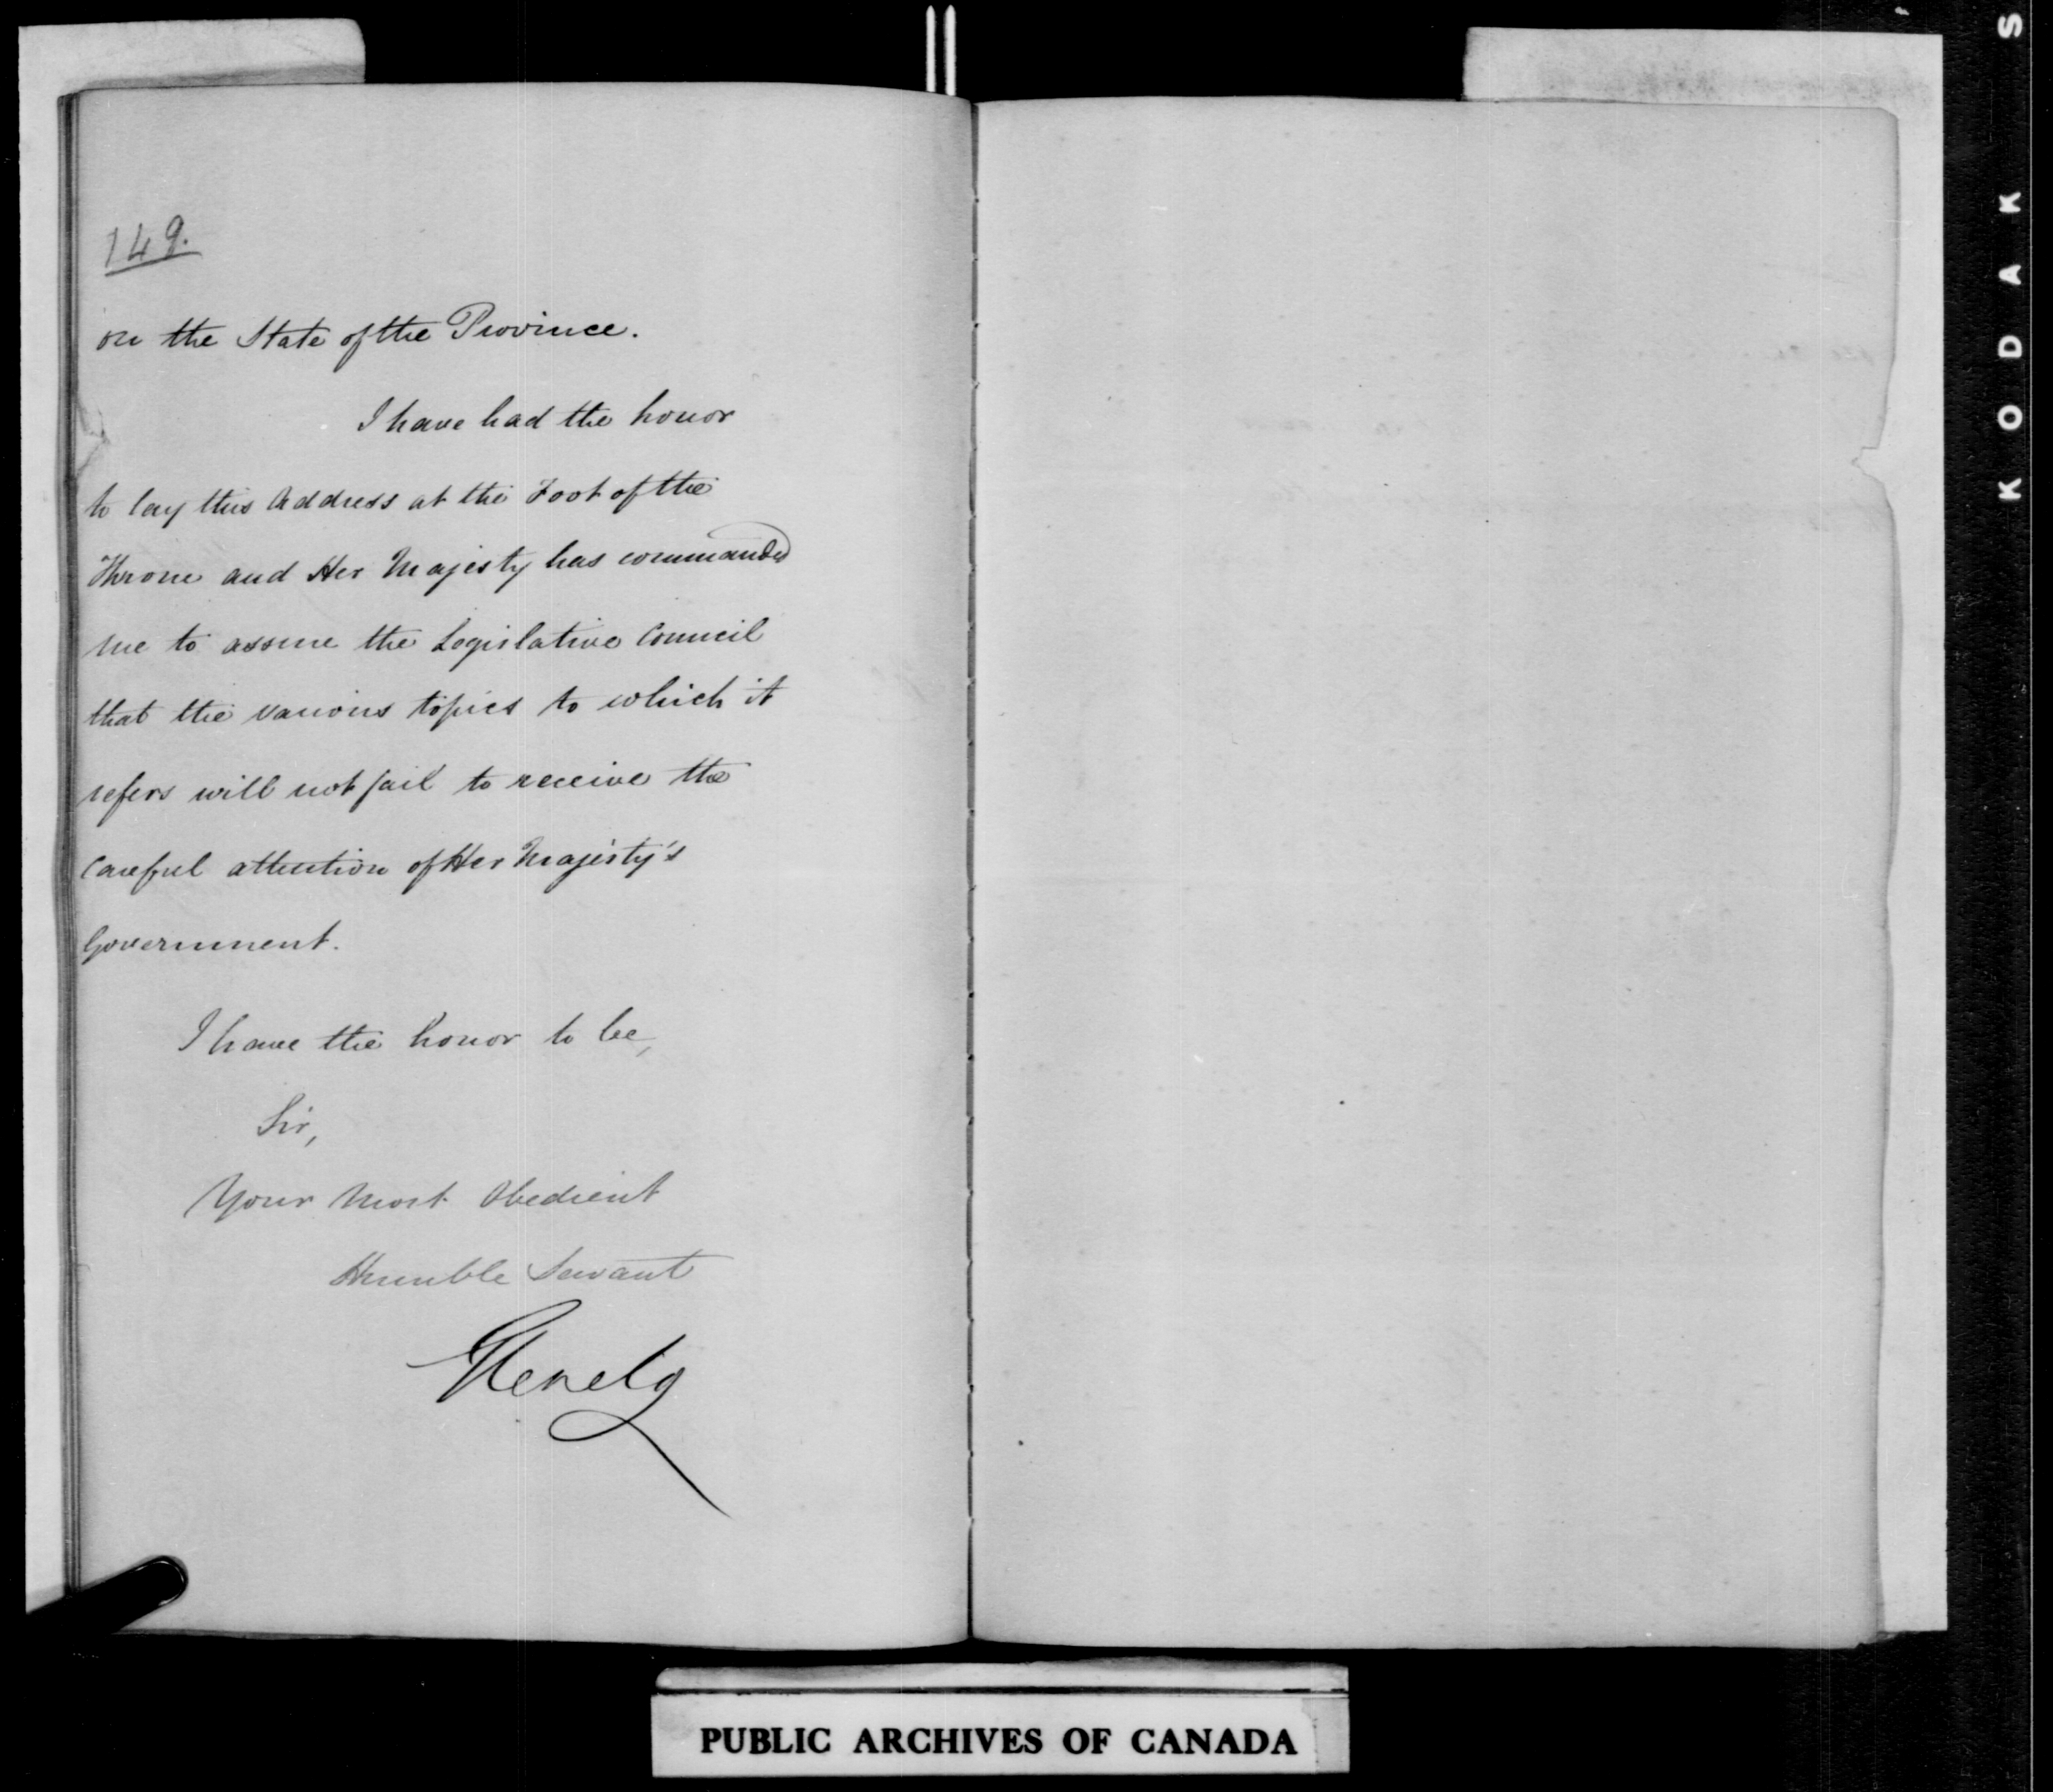 149.
on the State of the Province.
I have had the honor
to lay this Address at the Foot of the
Throne and Her Majesty has commanded
me to assure the Legislative Council
that the various topics to which it
refers will not fail to receive the
careful attention of Her Majesty's
Government.
I have the honor to be,
Sir,
Your Most Obedient
Humble Servant
Glenelg
PUBLIC ARCHIVES OF CANADA
KODAK S